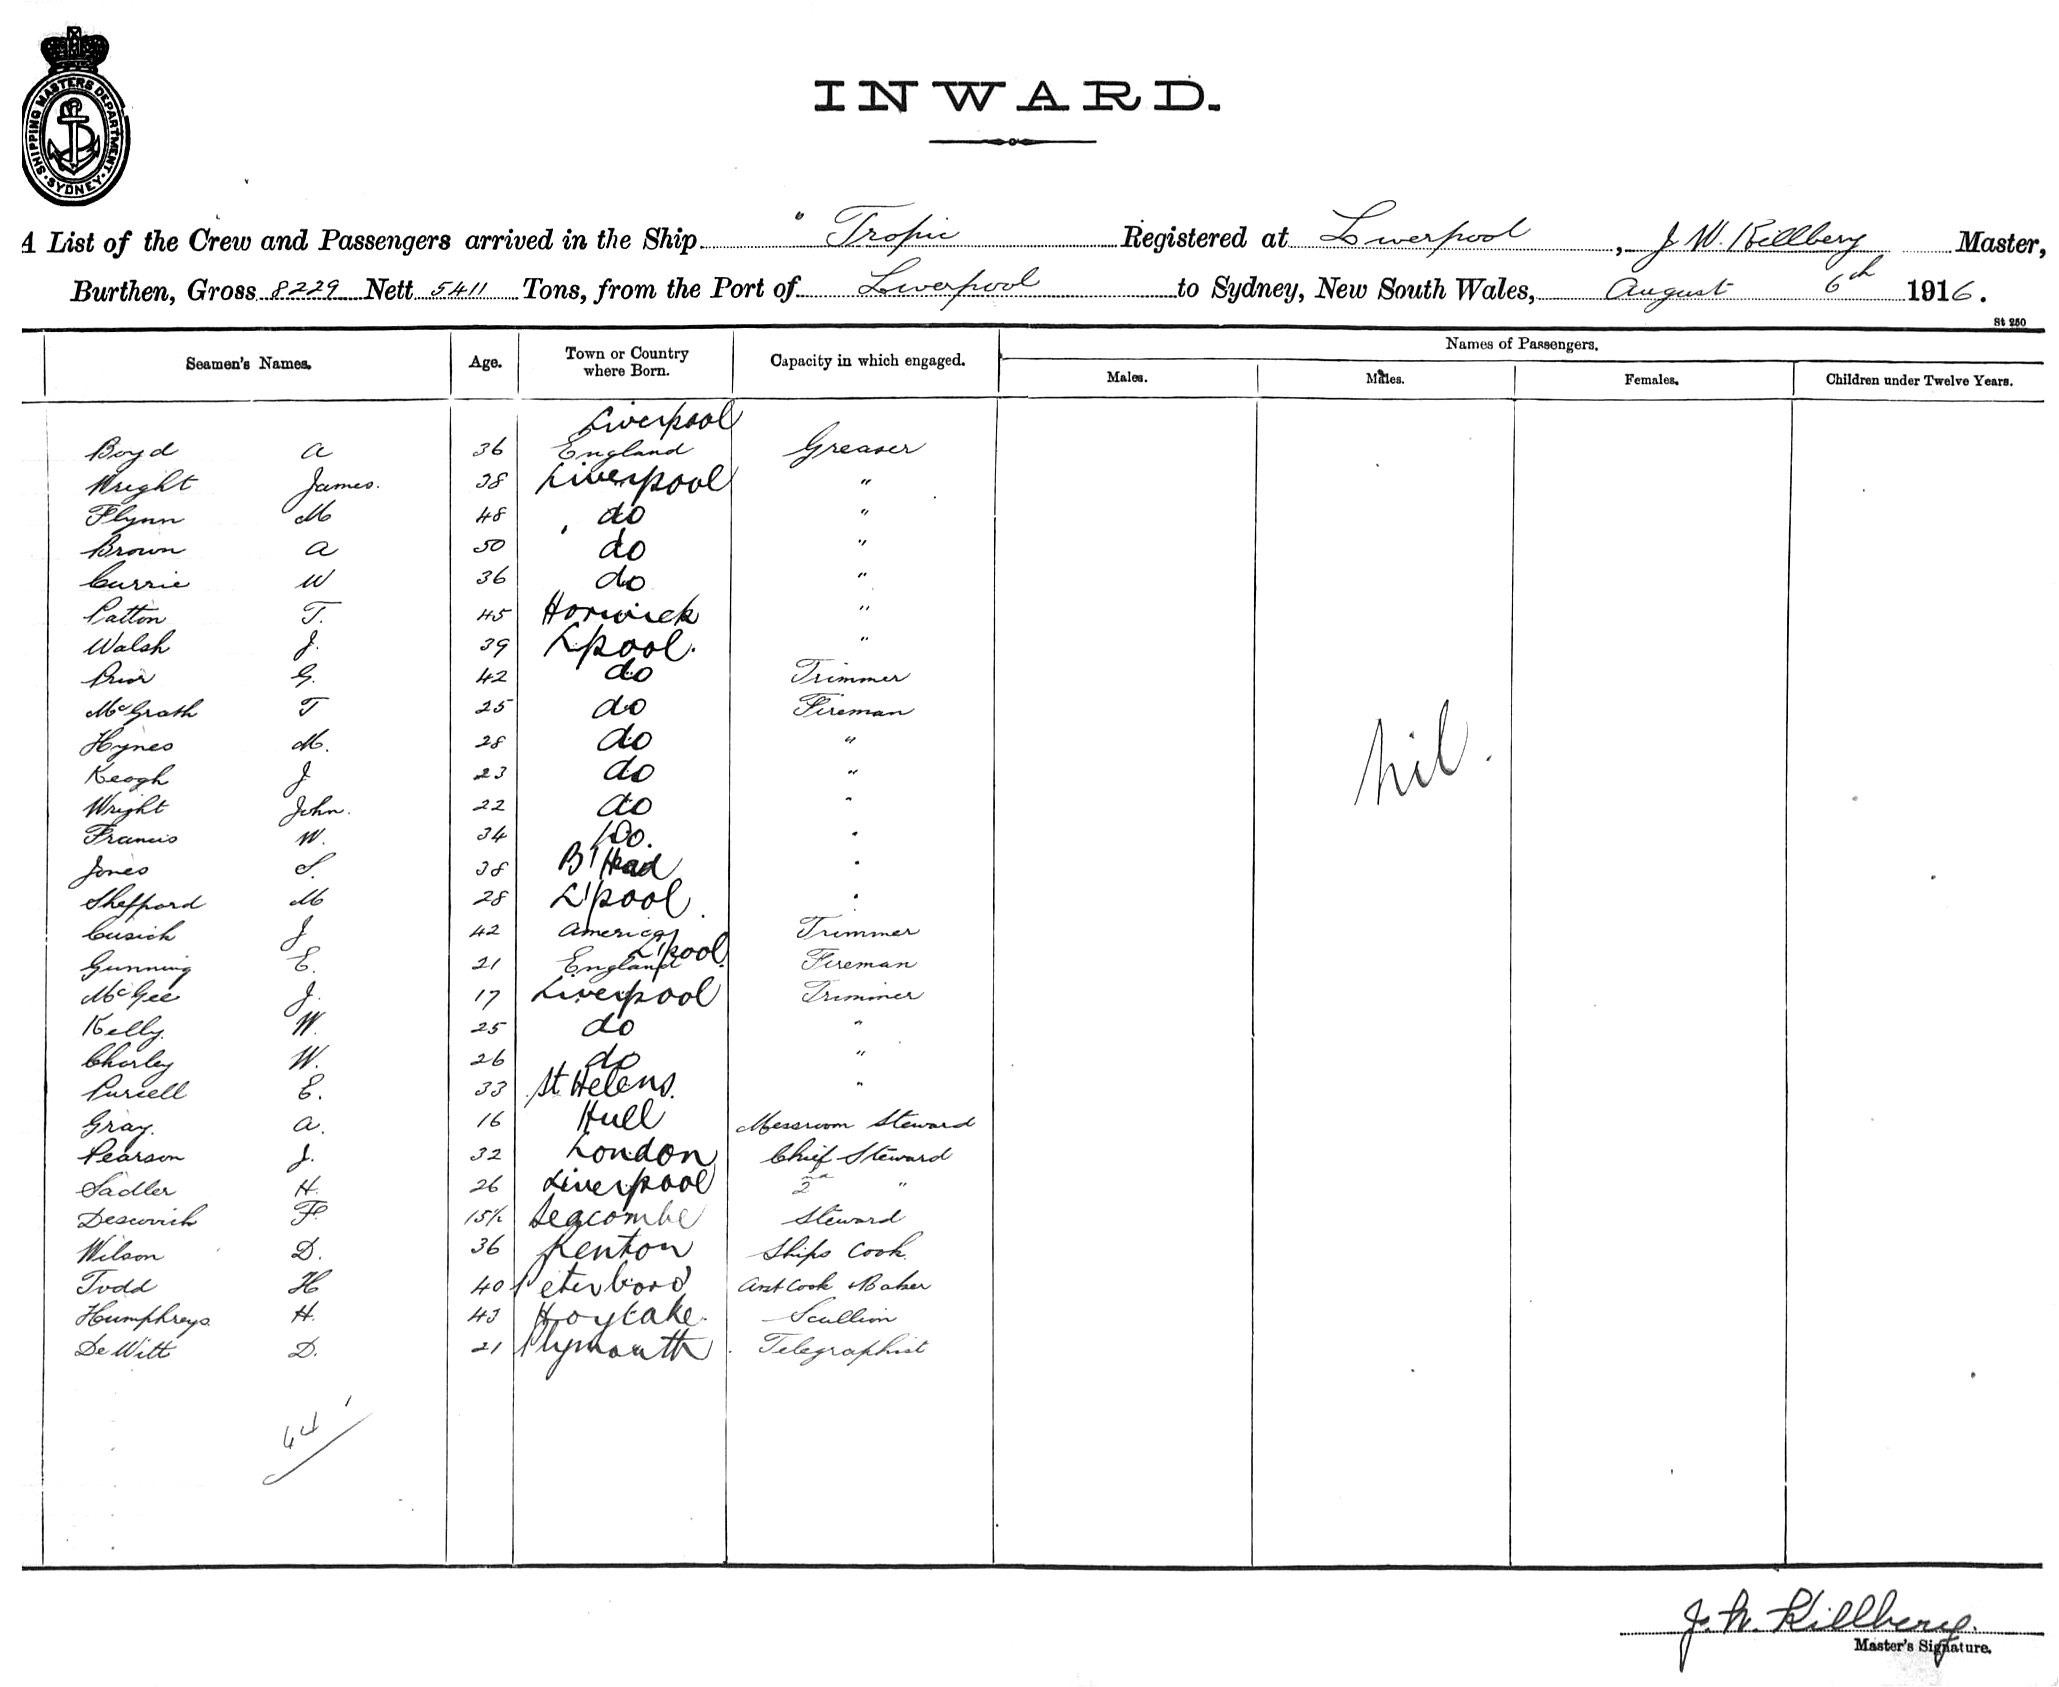 SHIPPING MASTERS DEPARTMENT
SYDNEY
INWARD.
A List of the Crew and Passengers arrived in the Ship " Tropic Registered at Liverpool, J W. Killbery Master,
Burthen, Gross 8229 Nett 5411 Tons, from the Port of Liverpool to Sydney, New South Wales, August 6th 1916.
St 250
Seamen's Names. Age. Town or Country where Born. Capacity in which engaged. Names of Passengers.
Males. Males. Females. Children under Twelve Years.
Liverpool
Boyd A 36 England Greaser
Wright James. 38 Liverpool "
Flynn M 48 do "
Brown A 50 do "
Currie W 36 do "
Patton T. 45 Horwick "
Walsh J. 39 L'pool. "
Prior G. 42 do Trimmer
McGrath T 25 do Fireman
Hynes M. 28 do "
Keogh J 23 do "
Wright John. 22 do "
Francis W. 34 Do. "
Jones S. 38 B'Head "
Sheppard M 28 L'pool "
Cusick J 42 America Trimmer
Gunning E. 21 England L'pool Fireman
McGee J. 17 Liverpool Trimmer
Kelly W. 25 do "
Chorley W. 26 do "
Purcell E. 33 St Helens. "
Gray. A. 16 Hull Messroom Steward
Pearson J. 32 London Chief Steward
Sadler H. 26 Liverpool 2nd "
F. 15½ Seacombe Steward
Wilson D. 36 Kenton Ships Cook
Todd H 40 Peterboro' Asst Cook & Baker
Humphreys H. 43 Hoylake. Scullion
De Witt D. 21 Plymouth Telegraphist
nil.
64
J. W. Killbery.
Master's Signature.